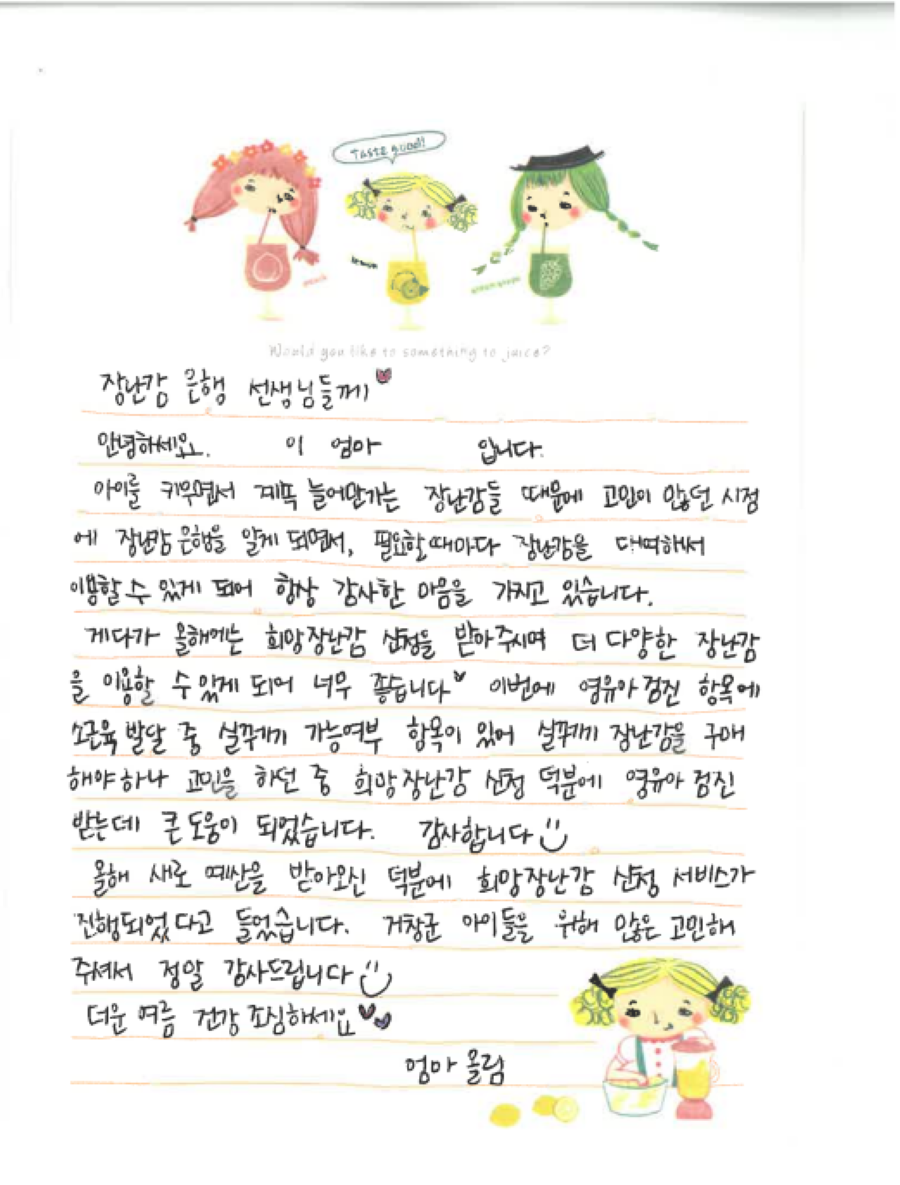 Taste good!
peach
lemon
green grape
Would you like to something to juice?
장난감 은행 선생님들께
안녕하세요. 이 엄마 입니다.
아이를 키우면서 계속 늘어만가는 장난감들 때문에 고민이 많던 시점
에 장난감은행을 알게 되면서, 필요할때마다 장난감을 대여하서
이용할 수 있게 되어 항상 감사한 마음을 가지고 있습니다.
게다가 올해에는 희망장난감 신청을 받아주시며 더 다양한 장난감
을 이용할 수 있게 되어 너무 좋습니다 이번에 영유아검진 항목에
소근육 발달 중 실꿰기 가능여부 항목이 있어 실꿰기 장난감을 구매
해야하나 고민을 하던 중 희망장난감 신청 덕분에 영유아 검진
받는데 큰 도움이 되었습니다. 감사합니다
올해 새로 예산을 받아오신 덕분에 희망장난감 신청 서비스가
진행되었다고 들었습니다. 거창군 아이들을 위해 많은 고민해
주셔서 정말 감사드립니다
더운 여름 건강 조심하세요
엄마 올림